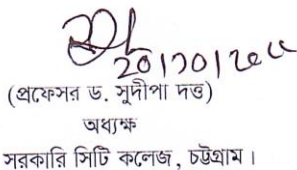 ২০/১০/২০২৫
(প্রফেসর ড. সুদীপা দত্ত)
অধ্যক্ষ
সরকারি সিটি কলেজ, চট্টগ্রাম।